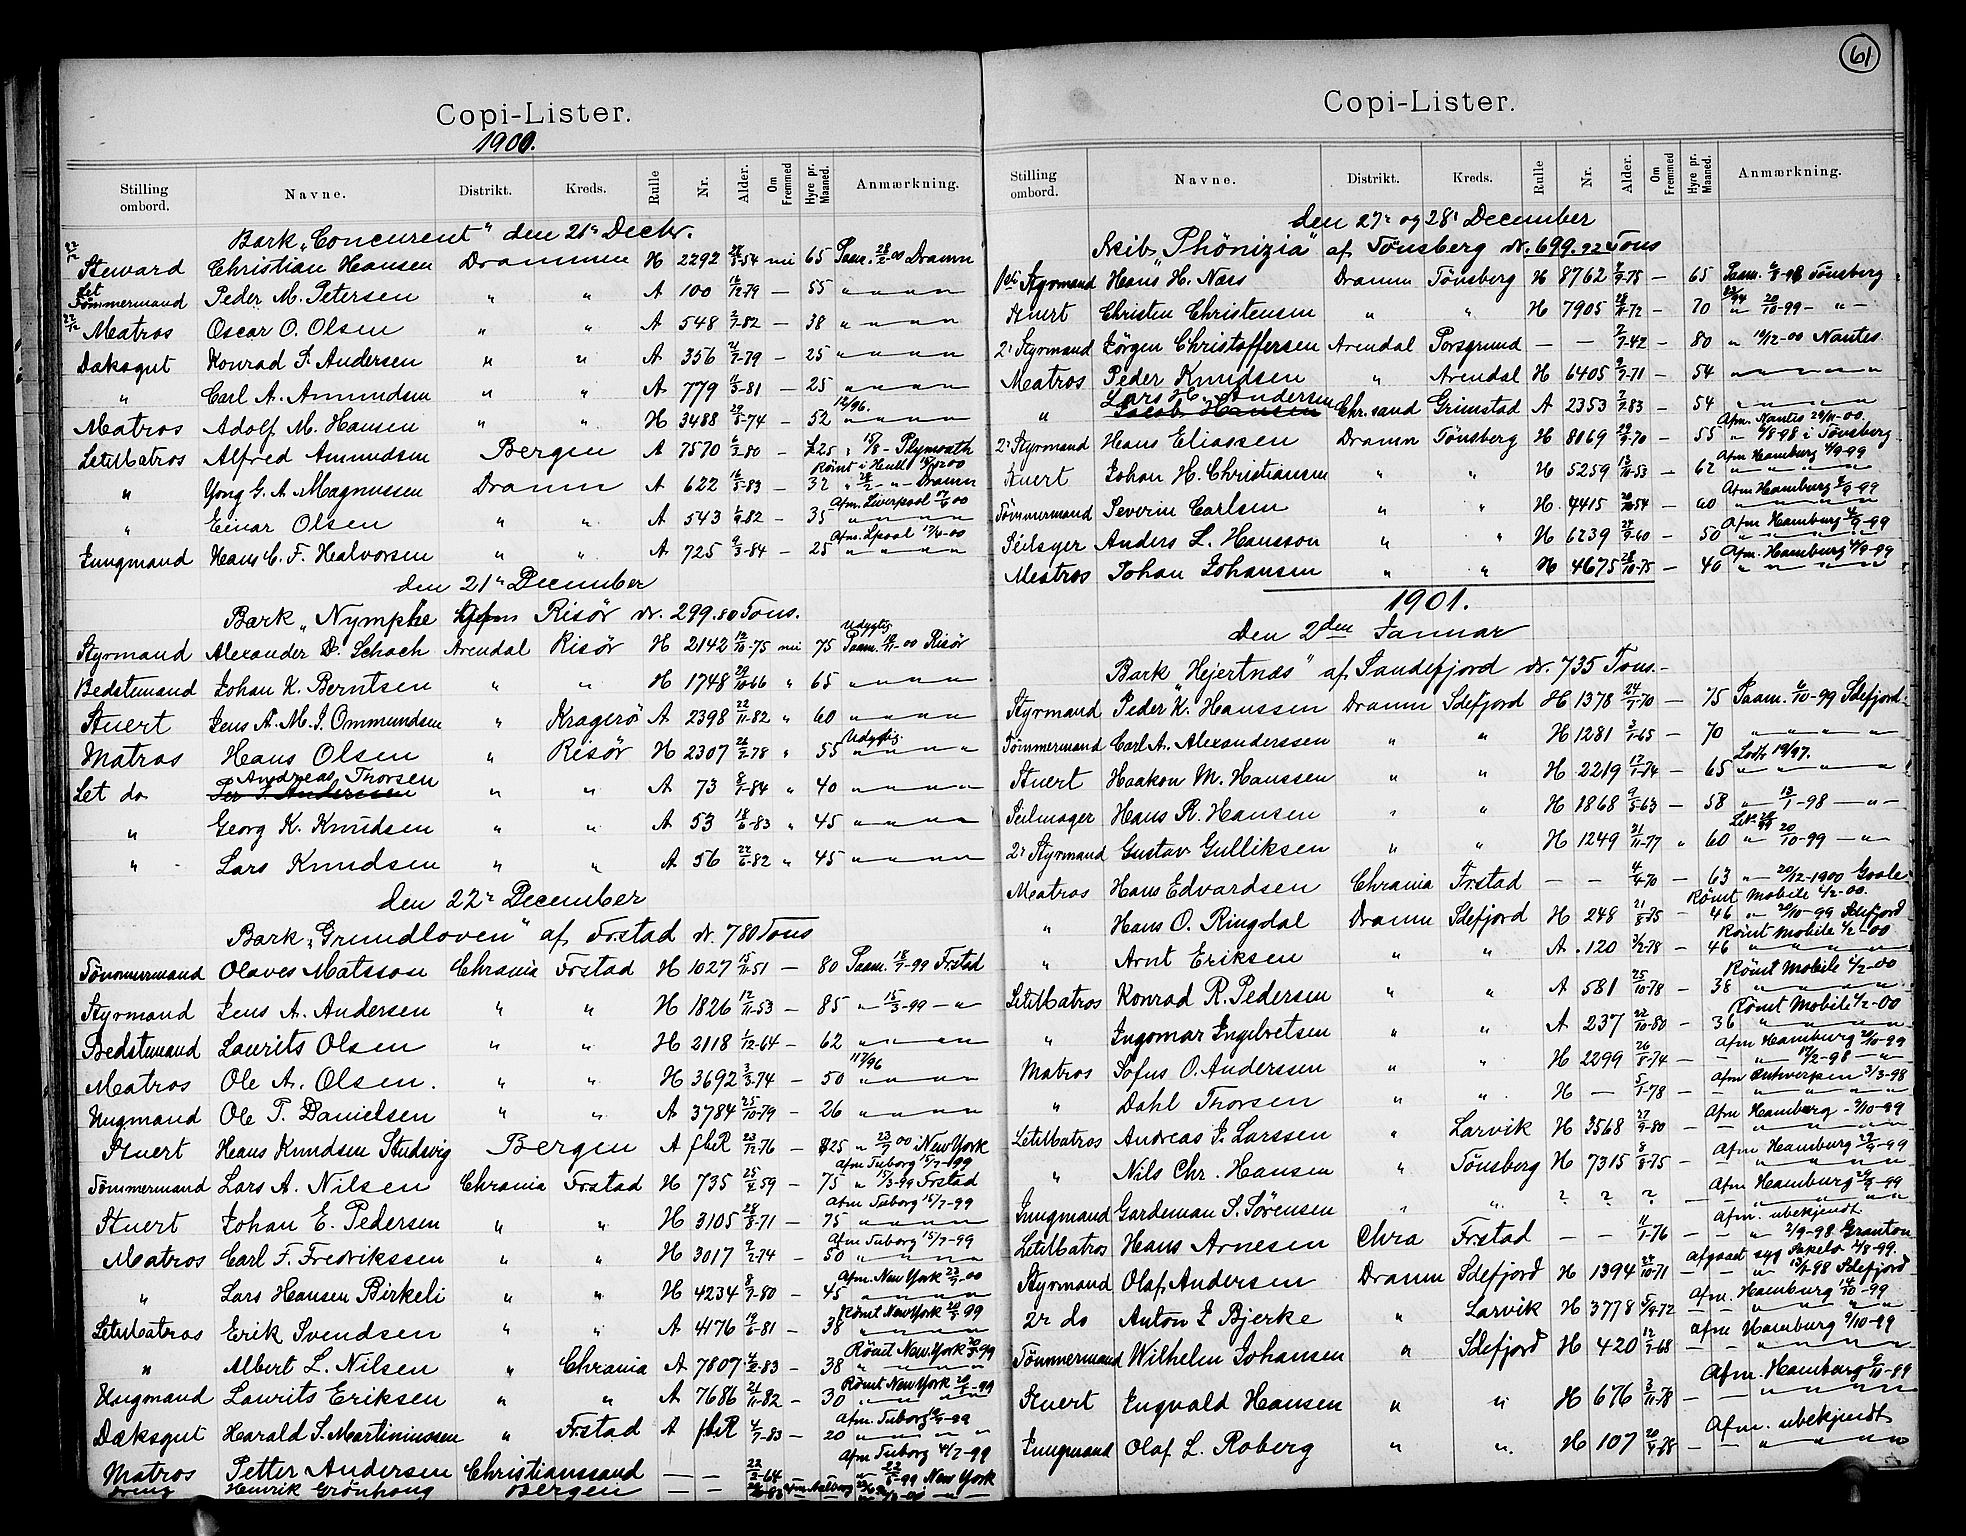 Copi-Lister.
1900.
Stilling ombord. Navne. Distrikt. Kreds. Rulle Nr. Alder. Om Fremmed Hyre pr. Maaned. Anmærkning.
Bark "Concurent" den 21' Decbr.
22/12 Steward Christian Hansen Drammen H 2292 -54 nei 65 Paam. 28/2-00 Dramn
Let Tømmermand Peder M. Petersen " " A 100 -79 — 55 " " " "
22/12 Matros Oscar O. Olsen " " A 548 -82 — 38 " " " "
Dæksgut Konrad S. Andersen " " A 356 -79 — 25 " " " "
" Carl A. Amundsen " " A 779 -81 — 25 " " " "
Matros Adolf M. Hansen " " H 3488 -74 — 52 12/96. " " " "
LetMatros Alfred Amundsen Bergen A 7570 -80 — £25 " 15/8 - Plymouth
" Yong G. A. Magnussen Dramn A 622 -83 — 32 Rømt i Hull " - " - Dramn
" Einar Olsen " " A 543 -82 — 35 Afm. Liverpool -00 " " " "
Jungmand Hans C. F. Halvorsen " " A 725 9/3-84 — 25 Afm. Lpool -00 " " " "
den 21' December
Bark "Nymphe Risør dr. 299.80 Tons.
Styrmand Alexander D. Schach Arendal Risør H 2142 -75 nei 75 Udygtig Paam. -00 Risør
Bedstemand Johan K. Berntsen " " H 1748 29/10-66 " 65 " " " "
Stuert Jens A. M. J. Ommundsen " Kragerø A 2398 22/11-82 " 60 " " " "
Matros Hans Olsen " Risør H 2307 26/2-78 " 55 Udygtig " " " "
Let do Andreas Thorsen " " A 73 -84 " 40 " " " "
" Georg K. Knudsen " " A 53 18/6-83 " 45 " " " "
" Lars Knudsen " " A 56 22/6-82 " 45 " " " "
den 22' December
Bark "Grundloven" af Frstad dr. 780 Tons
Tømmermand Olaves Matsson Chrania Frstad H 1027 15/11-51 — 80 Paam. 18/7-99 Frstad
Styrmand Jens A. Andersen " " H 1826 12/11-53 — 85 " 15/3-99 — " —
Bedstemand Laurits Olsen " " H 2118 1/12-64 — 62 " " " "
Matros Ole A. Olsen. " " H 3692 3/3-74 — 50 11/96 " " " "
Ungmand Ole T. Danielsen " " A 3784 25/10-79 — 26 " " " "
Stuert Hans Knudsen Studsvig Bergen A fbR 23/12-76 — $25 " 23/7 00 i New York
Tømmermand Lars A. Nilsen Chrania Frstad H 735 25/4-59 — 75 Afm Tuborg 15/7-99 " 15/3-99 Frstad
Stuert Johan E. Pedersen " " H 3105 28/8-71 — 75 Afm Tuborg 15/7-99 " " " "
Matros Carl F. Fredrikssen " " H 3017 9/2-74 — 50 Afm Tuborg 15/7-99 " " " "
" Lars Hansen Birkeli " " H 4234 8/7-80 — 45 Afm. New York 23/7-00 " " " "
LetMatros Erik Svendsen " " A 4176 19/6-81 — 38 Rømt New York 99 " " " "
" Albert L. Nilsen " Chrania A 7807 -83 — 38 Rømt New York -99 " " " "
Ungmand Laurits Eriksen " " A 7686 21/11-82 — 30 Rømt New York -99 " " " "
Dæksgut Harald S. Martiniussen " Frstad A fbR 4/7-83 — 20 Afm. Tuborg -99 " " " "
Matros Petter Andersen Christianssand — — 22/2-64 Afm Tuborg 4/7-99 -99 New York
Henrik Grönhaug Bergen — — -83 afm Aalborg
61
Copi-Lister.
Stilling ombord. Navne. Distrikt. Kreds. Rulle Nr. Alder. Om Fremmed Hyre pr. Maaned. Anmærkning.
den 27' og 28' December
Skib "Phönizia" af Tönsberg dr. 699.92 Tons
1ste Styrmand Hans H. Næss Dramn Tønsberg H 8762 -75 — 65 Paam. 6/8-98 Tønsberg
Stuert Christen Christensen " " H 7905 28/8-72 — 70 " 20/10-99 - " -
2' Styrmand Jörgen Christoffersen Arendal Porsgrund — — -42 — 80 " 18/12-00 Nantes
Matros Peder Knudsen " Arendal H 6405 -71 — 54 " " " "
" Lars H. Andersen Chr.sand Grimstad A 2353 -83 — 54 " " " "
2' Styrmand Hans Eliassen Dramn Tønsberg H 8069 29/9-70 — 55 Afm. Nantes 29/11-00. " 6/8-98 i Tønsberg
Stuert Johan H. Christiansen " " H 5259 13/10-53 — 62 Afm Hamburg 4/9-99 " " " "
Tømmermand Severin Carlsen " " H. 4415 -54 — 60 Afm Hamburg 4/9-99 " " " "
Seilsyer Anders L. Hansson " " H 6239 -60 — 50 Afm Hamburg 4/9-99 " " " "
Matros Johan Johansen " " H 4675 28/10-75 — 40 Afm. Hamburg 4/9-99 " " " "
1901.
Den 2den Januar
Bark "Hjertnæs" af Sandefjord dr. 735 Tons.
Styrmand Peder K. Hanssen Dramn Sdefjord H 1378 24/7-70 — 75 Paam. 6/10-99 Sdefjord
Tømmermand Carl A. Alexanderssen " " H 1281 3/1-65 — 70 " " " "
Stuert Haakon M. Hanssen " " H 2219 17/1-74 — 65 19/97. " " " "
Seilmager Hans R. Hansen " " H 1868 9/5-63 — 58 " 13/1-98 — " —
2' Styrmand Gustav Gulliksen " " H 1249 21/11-77 " 60 " 20/10-99 — "
Matros Hans Edvardsen Chrania Frstad — — 4/4-70 — 63 " — 20/12-1900 Goole
" Hans O. Ringdal Dramn Sdefjord H 248 21/8-75 — 46 Rømt Mobile 6/2-00. " 20/10-99 Sdefjord
" Arnt Eriksen " " A 120 3/2-78 — 46 Rømt Mobile 6/2-00 " " " "
LetMatros Konrad R. Pedersen " " A 581 25/10-78 — 38 Rømt Mobile 6/2-00 " " " "
" Ingomar Ingebretsen " " A 237 22/10-80 — 36 Rømt Mobile 6/2-00 " " " "
Matros Sofus O. Anderssen " " H 2299 26/8-74 — — Afm Hamburg 20/10-99 " 17/2-98 — "
" Dahl Thorsen " " H — 5/1-78 — — Afm Antwerpen 3/3-98 " " " "
LetMatros Andreas J. Larssen " Larvik H 3568 27/9-80 — — Afm Hamburg - 9/10-99 " " " "
" Nils Chr. Hansen " Tønsberg H 7315 8/8-75 — — Afm Hamburg 29/9-99 " " " "
Jungmand Gardeman S. Sörensen " " ? ? ? — — Afm Hamburg 29/9-99 " " " "
LetMatros Hans Arnesen Chra Frstad — — 11/1-76 — — Afm. ubekjendt " 2/9-98 Granton
Styrmand Olaf Andersen Dramn Sdefjord H 1394 27/10-71 — — Afgaaet syg 2/8-99. " -98 Sdefjord
2r do Anton J Bjerke " Larvik H 3778 5/9-72 — — Afm. Hamburg 14/10-99 " " " "
Tømmermand Wilhelm Johansen " Sdefjord H 420 12/7-68 — — afm Hamburg 9/10-99 " " " "
Stuert Ingvald Hansen " " H 676 3/11-78 — — Afm. Hamburg 9/10-99 " " " "
Jungmand Olaf L. Roberg " " H 107 — — Afm. ubekjendt " " " "